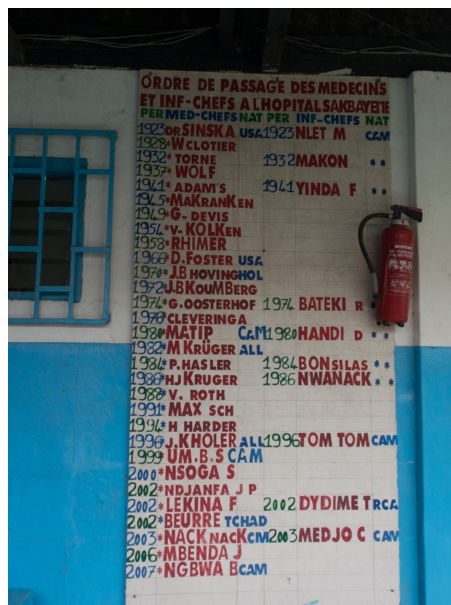 ORDRE DE PASSAGE DES MEDECINS
ET INF-CHEFS A LHOPITAL SAKBAYEME
PER MED-CHEFS NAT PER INF-CHEFS NAT
1923 DR SINSKA USA 1923 NLET M CAM
1928 " W CLOTIER
1932 " TORNE 1932 MAKON " "
1937 " WOLF
1941 " ADAM'S 1941 YINDA F " "
1945 " MaKRanKen
1949 " G- DEVIS
1954 " V- KOLKen
1958 " RHIMER
1966 " D. FOSTER USA
1970 " J.B HOVING HOL
1972 " J.B KOUMBERG
1974 " G. OOSTERHOF 1974 BATEKI R "
1976 " CLEVERINGA
1980 " MATIP CAM 1980 HANDI D " "
1982 " M KRÜGER ALL
1984 " P. HASLER 1984 BONSILAS " "
1986 " HJ KRUGER 1986 NWANACK " "
1988 " V. ROTH
1991 " MAX SCH
1994 " H HARDER
1996 " J. KHOLER ALL 1996 TOM TOM CAM
1999 " UM.B.S CAM
2000 " NSOGA S
2002 " NDJANFA J P
2002 " LEKINA F 2002 DYDIME T RCA
2002 " BEURRE TCHAD
2003 " NACK NACK CM 2003 MEDJO C CAM
2006 " MBENDA J
2007 " NGBWA B CAM